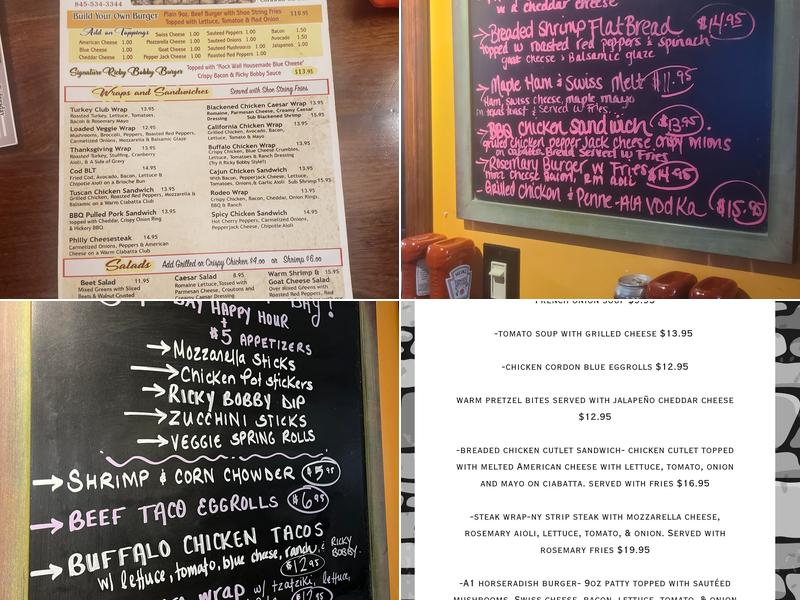 845-534-3344
Build Your Own Burger
Plain 9oz. Beef Burger with Shoe String Fries
Topped with Lettuce, Tomato & Red Onion
$10.95
Add on Toppings
American Cheese 1.00
Blue Cheese 1.00
Cheddar Cheese 1.00
Swiss Cheese 1.00
Mozzarella Cheese 1.00
Goat Cheese 1.00
Pepper Jack Cheese 1.00
Sauteed Peppers 1.00
Sauteed Onions 1.00
Sauteed Mushrooms 1.00
Roasted Red Peppers 1.00
Bacon 1.50
Avocado 1.50
Jalapenos 1.00
Signature Ricky Bobby Burger
Topped with "Rock Wall Housemade Blue Cheese"
Crispy Bacon & Ricky Bobby Sauce
$13.95
Wraps and Sandwiches
Served with Shoe String Fries
Turkey Club Wrap 13.95
Roasted Turkey, Lettuce, Tomatoes,
Bacon & Rosemary Mayo
Loaded Veggie Wrap 13.95
Mushrooms, Broccoli, Peppers, Roasted Red Peppers,
Carmelized Onions, Mozzarella & Balsamic Glaze
Thanksgiving Wrap 13.95
Roasted Turkey, Stuffing, Cranberry
Aioli, & A Side of Gravy
Cod BLT 14.95
Fried Cod, Avocado, Bacon, Lettuce &
Chipotle Aioli on a Brioche Bun
Tuscan Chicken Sandwich 13.95
Grilled Chicken, Roasted Red Peppers, Mozzarella &
Balsamic on a Warm Ciabatta Club
BBQ Pulled Pork Sandwich 13.95
topped with Cheddar, Crispy Onion Ring
& Hickory BBQ
Philly Cheesesteak 14.95
Carmelized Onions, Peppers & American
Cheese on a Warm Ciabatta Club
Blackened Chicken Caesar Wrap 13.95
Romaine, Parmesan Cheese, Creamy Caesar
Dressing Sub Blackened Shrimp 15.95
California Chicken Wrap 13.95
Grilled Chicken, Avocado, Bacon,
Lettuce, Tomato & Mayo
Buffalo Chicken Wrap 13.95
Crispy Chicken, Blue Cheese Crumbles,
Lettuce, Tomatoes & Ranch Dressing
(Try it Ricky Bobby Style!)
Cajun Chicken Sandwich 13.95
With Bacon, Pepperjack Cheese, Lettuce,
Tomatoes, Onions & Garlic Aioli Sub Shrimp 15.95
Rodeo Wrap 13.95
Crispy Chicken, Bacon, Cheddar, Onion Rings,
BBQ & Ranch
Spicy Chicken Sandwich 14.95
Hot Cherry Peppers, Carmelized Onions,
Pepperjack Cheese, Chipotle Aioli
Salads
Add Grilled or Crispy Chicken $4.00 or Shrimp $6.00
Beet Salad 11.95
Mixed Greens with Sliced
Beets & Walnut Crusted
Caesar Salad 8.95
Romaine Lettuce, Tossed with
Parmesan Cheese, Croutons and
Creamy Caesar Dressing
Warm Shrimp & 15.95
Goat Cheese Salad
Over Mixed Greens with
Roasted Red Peppers, Red
w a cheddar cheese
Breaded shrimp FlatBread $14.95
topped w roasted red peppers & spinach
goat cheese & Balsamic glaze
Maple Ham & Swiss Melt $11.95
Ham, Swiss cheese, maple mayo
on texas toast & Served w/ Fries
BBQ chicken sandwich $13.95
grilled chicken pepper jack cheese crispy onions
on ciabatta Bread Served w Fries
Rosemary Burger w Fries $14.95
Grilled chicken & Penne-Ala Vodka $15.95
HEINZ
DAY HAPPY HOUR
$5 APPETIZERS
→ Mozzarella Sticks
→ Chicken Pot stickers
→ RICKY BOBBY DIP
→ ZUCCHINI STICKS
→ VEGGIE SPRING ROLLS
→ SHRIMP & CORN CHOWDER $5.95
→ BEEF TACO EGGROLLS $6.95
→ BUFFALO CHICKEN TACOS
w/ lettuce, tomato, blue cheese, ranch & RICKY BOBBY
$12.95
wrap w/ tzatziki, lettuce,
$12.95
FRENCH ONION SOUP $9.95
-TOMATO SOUP WITH GRILLED CHEESE $13.95
-CHICKEN CORDON BLUE EGGROLLS $12.95
WARM PRETZEL BITES SERVED WITH JALAPEÑO CHEDDAR CHEESE
$12.95
-BREADED CHICKEN CUTLET SANDWICH- CHICKEN CUTLET TOPPED
WITH MELTED AMERICAN CHEESE WITH LETTUCE, TOMATO, ONION
AND MAYO ON CIABATTA. SERVED WITH FRIES $16.95
-STEAK WRAP-NY STRIP STEAK WITH MOZZARELLA CHEESE,
ROSEMARY AIOLI, LETTUCE, TOMATO, & ONION. SERVED WITH
ROSEMARY FRIES $19.95
-A1 HORSERADISH BURGER- 9OZ PATTY TOPPED WITH SAUTÉED
MUSHROOMS, SWISS CHEESE, BACON, LETTUCE, TOMATO, & ONION